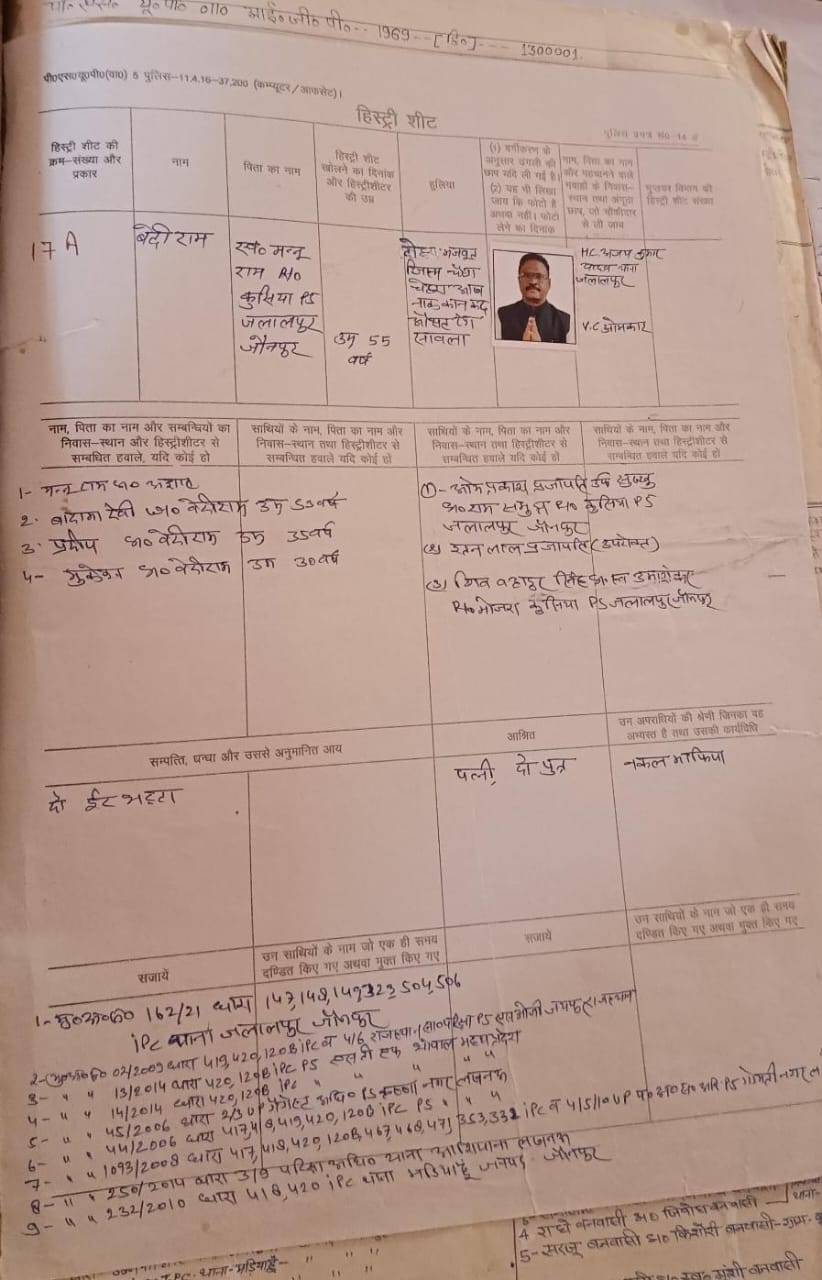 यू० पी० आई० जी० पी०-- 1969--[हि०]--- 1300001.
पी०एस०यू०पी०(पा०) 5 पुलिस–11.4.16–37,200 (कम्प्यूटर/आफसेट)।
हिस्ट्री शीट
पुलिस प्रपत्र सं०
हिस्ट्री शीट की क्रम–संख्या और प्रकार
नाम
पिता का नाम
हिस्ट्री शीट खोलने का दिनांक और हिस्ट्रीशीटर की उम्र
हुलिया
(1) वर्गीकरण के अनुसार उंगली की छाप यदि ली गई है। (2) यह भी लिखा जाय कि फोटो है अथवा नहीं। फोटो लेने का दिनांक
नाम, पिता का नाम और पहचानने वाले गवाहों के निवास–स्थान तथा अंगूठा छाप, जो चौकीदार से ली जाय
गुप्तचर विभाग की हिस्ट्री शीट संख्या
17 A
बेदी राम
स्व० मन्नू
राम R/o
कुसिया PS
जलालपुर
जौनपुर
उम्र 55
वर्ष
मजबूत
जिस्म
नाक कान कद
औसत रंग
सावला
HC अजय कुमार
यादव थाना
जलालपुर
V.C ओमकार
नाम, पिता का नाम और सम्बन्धियों का निवास–स्थान और हिस्ट्रीशीटर से सम्बंधित हवाले, यदि कोई हो
साथियों के नाम, पिता का नाम और निवास–स्थान तथा हिस्ट्रीशीटर से सम्बन्धित हवाले यदि कोई हो
साथियों के नाम, पिता का नाम और निवास–स्थान तथा हिस्ट्रीशीटर से सम्बन्धित हवाले यदि कोई हो
साथियों के नाम, पिता का नाम और निवास–स्थान तथा हिस्ट्रीशीटर से सम्बन्धित हवाले यदि कोई हो
1- मन्नू राम S/o
2. बादामा देवी W/o बेदीराम उम्र 55 वर्ष
3. प्रदीप S/o बेदीराम उम्र 35 वर्ष
4- S/o बेदीराम उम्र 30 वर्ष
① - ओम प्रकाश प्रजापति उर्फ
S/o राम समुझ R/o कुसिया PS
जलालपुर जौनपुर
(2) रतन लाल प्रजापति (उपरोक्त)
(3) शिव बहादुर सिंह S/o स्व उमाशंकर
R/o कुसिया PS जलालपुर जौनपुर
सम्पत्ति, धन्धा और उससे अनुमानित आय
आश्रित
उन अपराधियों की श्रेणी जिनका वह अभ्यस्त है तथा उसकी कार्यविधि
दो ईंट भट्टा
पत्नी, दो पुत्र
नकल माफिया
सजायें
उन साथियों के नाम जो एक ही समय दण्डित किए गए अथवा मुक्त किए गए
सजायें
उन साथियों के नाम जो एक ही समय दण्डित किए गए अथवा मुक्त किए गए
1- मु०अ०सं० 162/21 धारा 147,148,149,323,504,506
IPC थाना जलालपुर जौनपुर
2- मु०अ०सं० 02/2009 धारा 419,420,120B IPC व 4/6 राजस्थान सा० परीक्षा PS एस ओ जी जयपुर राजस्थान
3- " " 13/2014 धारा 420,120B IPC PS एस टी एफ भोपाल मध्यप्रदेश
4- " " 14/2014 धारा 420,120B IPC " " " "
5- " " 45/2006 धारा 2/3 UP गैंगेस्टर अधि० PS कृष्णा नगर लखनऊ
6- " " 44/2006 धारा 417,418,419,420,120B IPC PS " "
7- " " 1093/2008 धारा 417,418,420,120B,467,468,471,353,332 IPC व 4/5/10 UP PS गोमती नगर
8- " " 250/2014 धारा 3/9 परीक्षा अधि० थाना आशियाना लखनऊ
9- " " 232/2010 धारा 418,420 IPC थाना मडियाहूं जनपद जौनपुर
4 राधे बनवासी S/o बनवासी
5- सरजू बनवासी S/o किशोरी बनवासी
थाना-मड़ियाहूं- " "
बनवासी